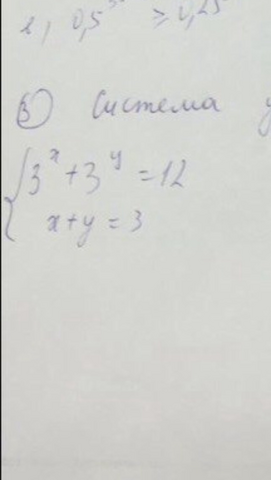 0,5 ≥ 0,25
3) Система
{ 3^x + 3^y = 12
x + y = 3